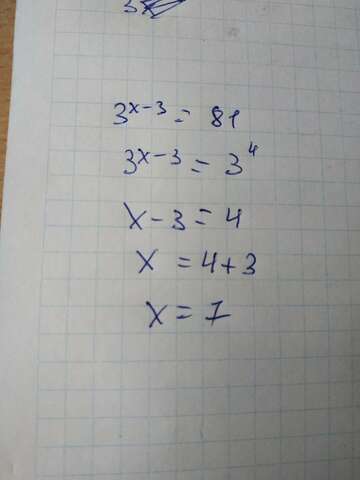 3^{x-3} = 81
3^{x-3} = 3^4
x-3=4
x = 4+3
x = 7